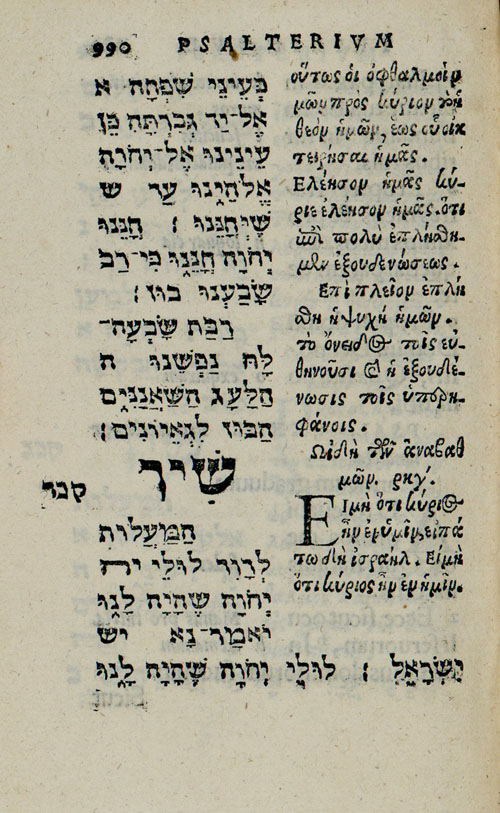 990 PSALTERIVM
כְּעֵינֵי שִׁפְחָה א
אֶל־יַד גְּבִרְתָּהּ כֵּן
עֵינֵינוּ אֶל־יְהֹוָה
אֱלֹהֵינוּ עַד ש
שֶׁיְּחָנֵּנוּ׃ חָנֵּנוּ
יְהֹוָה חָנֵּנוּ כִּי־רַב
שָׂבַעְנוּ בוּז׃
רַבַּת שָׂבְעָה־
לָּהּ נַפְשֵׁנוּ ה
הַלַּעַג הַשַּׁאֲנַנִּים
הַבּוּז לִגְאֵיוֹנִים׃
שִׁיר קכד
הַמַּעֲלוֹת
לְדָוִד לוּלֵי יה
יְהֹוָה שֶׁהָיָה לָנוּ
יֹאמַר־נָא יש
יִשְׂרָאֵל׃ לוּלֵי יְהֹוָה שֶׁהָיָה לָנוּ
οὕτως οἱ ὀφθαλμοὶ ἡ
μῶν πρὸς κύριον τὸν
θεὸν ἡμῶν, ἕως οὗ οἰκ
τειρῆσαι ἡμᾶς.
Ἐλέησον ἡμᾶς κύ-
ριε ἐλέησον ἡμᾶς. ὅτι
ἐπὶ πολὺ ἐπλήθη-
μεν ἐξουδενώσεως.
Ἐπὶ πλεῖον ἐπλή
θη ἡ ψυχὴ ἡμῶν.
τὸ ὄνειδος τοῖς εὐ-
θηνοῦσι καὶ ἡ ἐξουδέ-
νωσις τοῖς ὑπερη-
φάνοις.
Ὠιδὴ τῶν ἀναβαθ
μῶν. ρκγ΄.
Εἰ μὴ ὅτι κύριος
ἦν ἐν ἡμῖν, εἰπά
τω δὴ ἰσραήλ. Εἰ μὴ
ὅτι κύριος ἦν ἐν ἡμῖν.